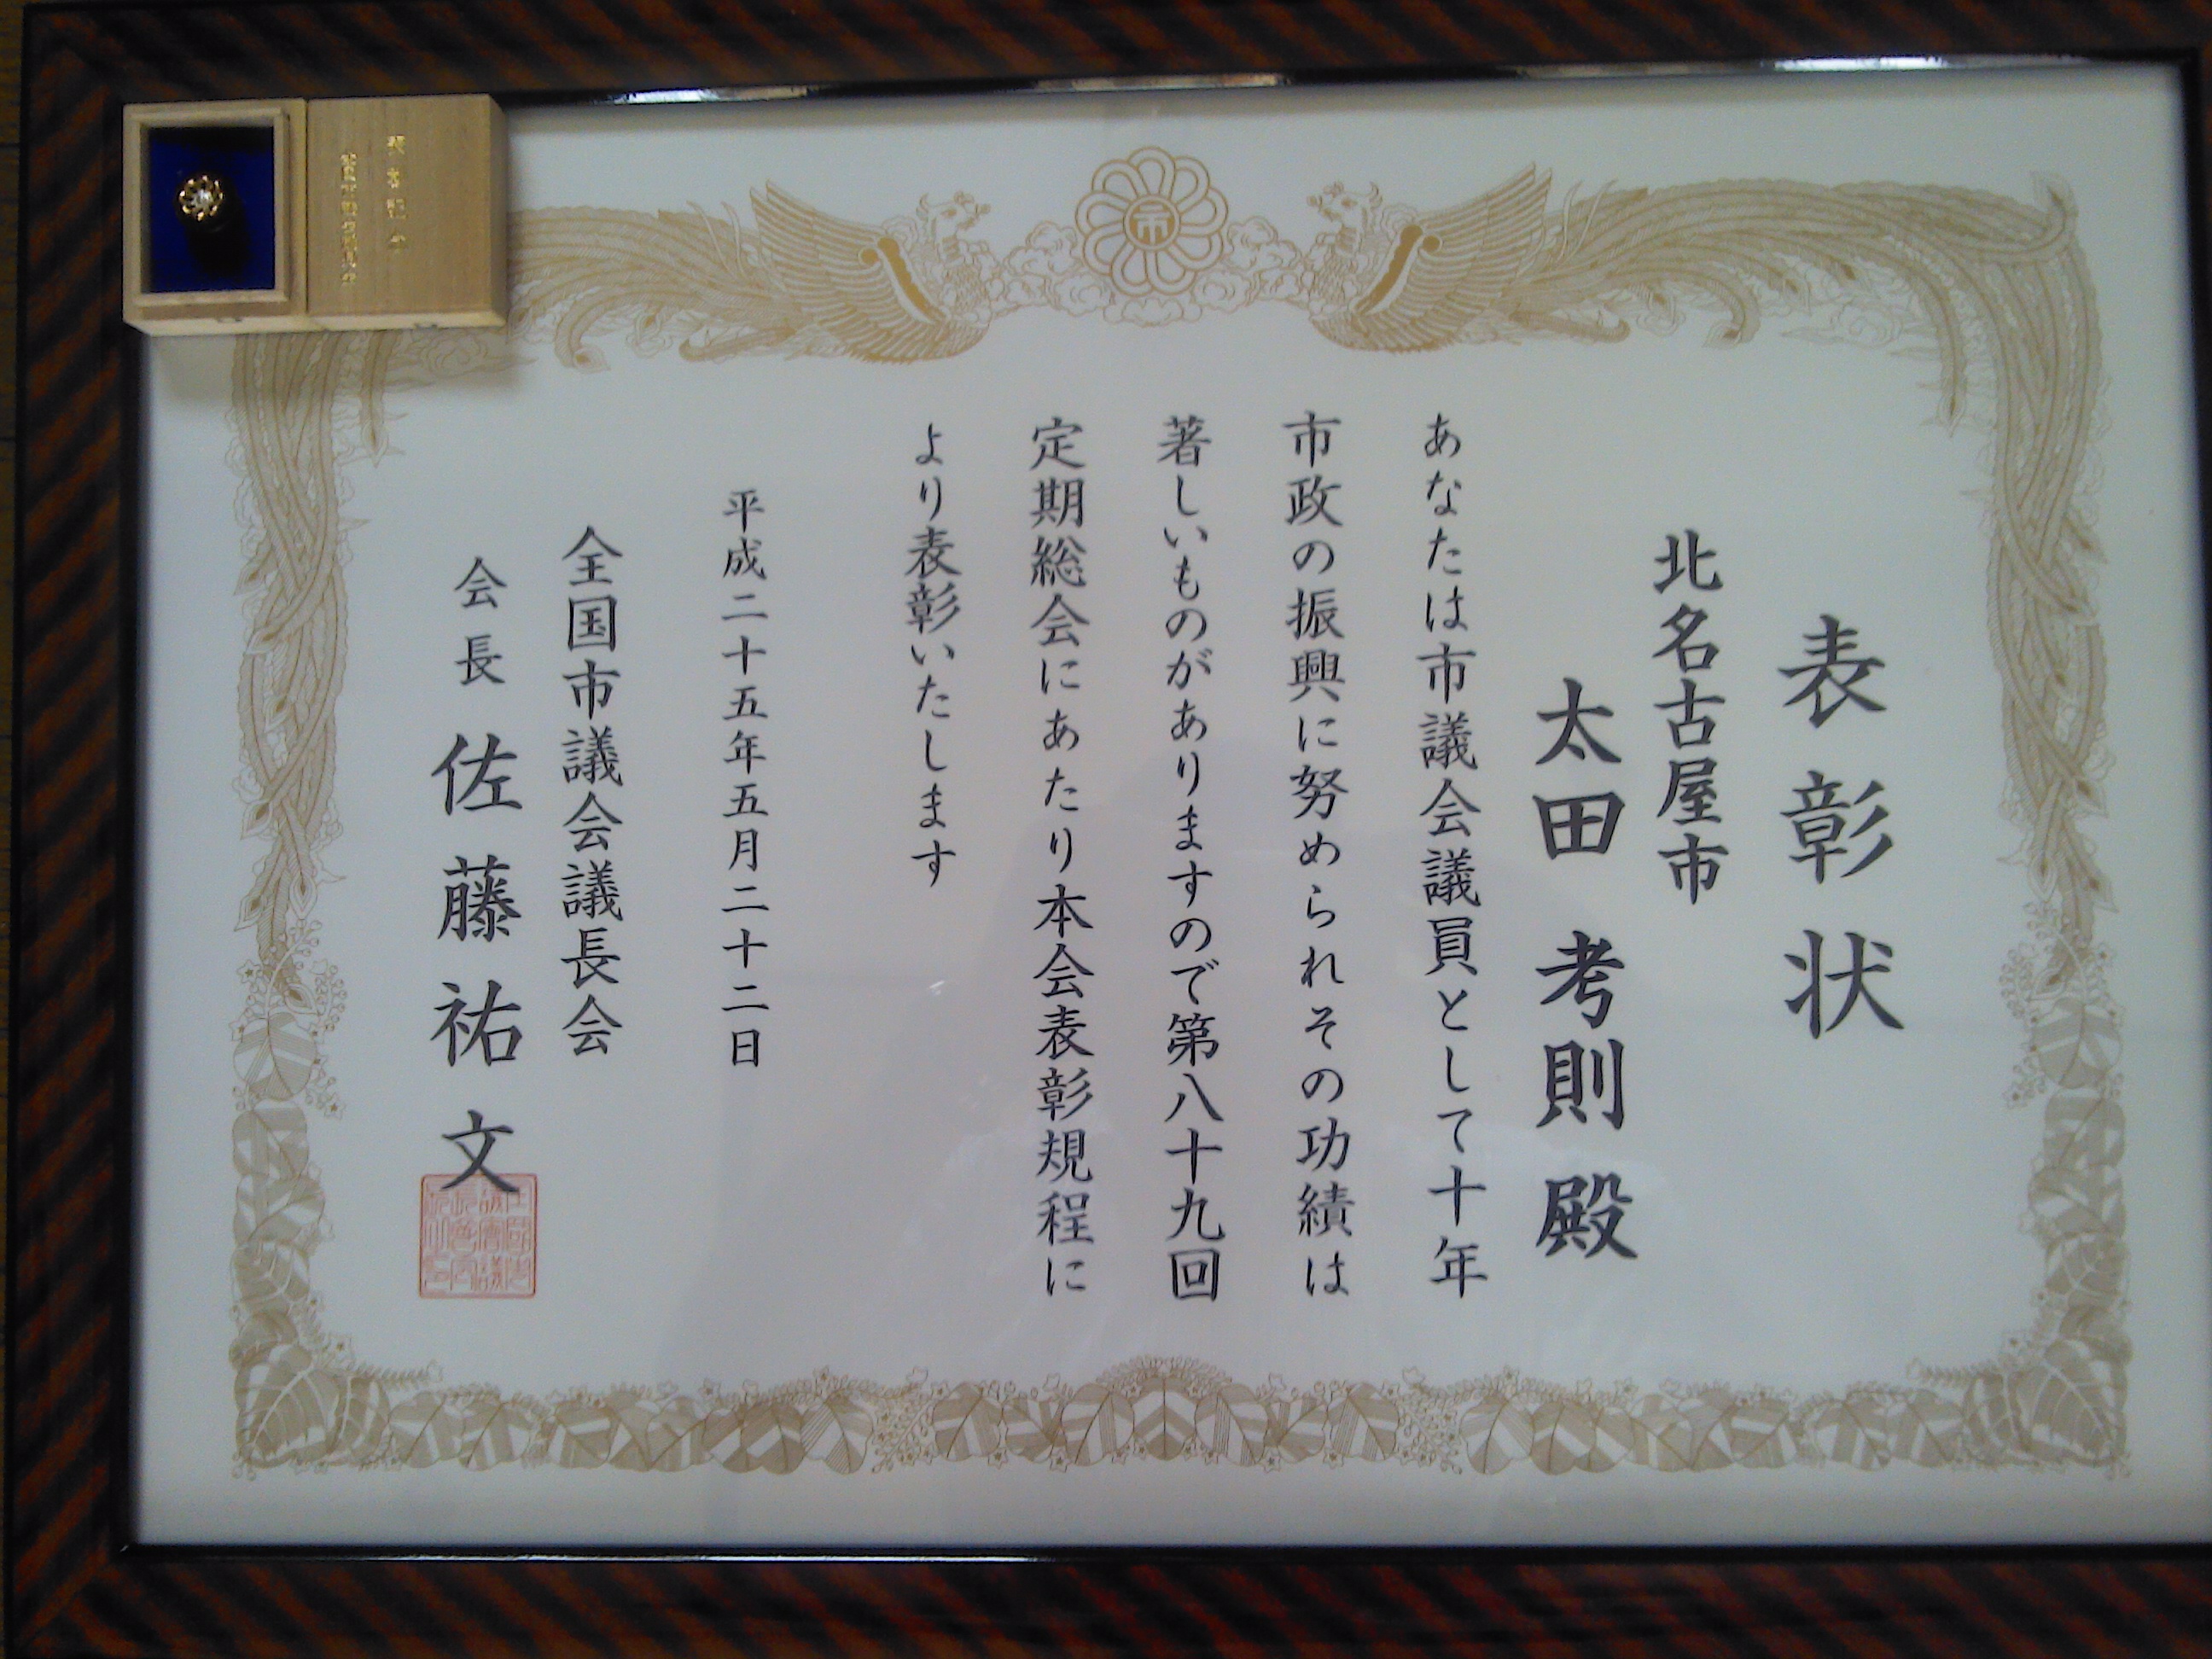 表彰状
北名古屋市
太田考則殿
あなたは市議会議員として十年
市政の振興に努められその功績は
著しいものがありますので第八十九回
定期総会にあたり本会表彰規程に
より表彰いたします
平成二十五年五月二十二日
全国市議会議長会
会長 佐藤祐文
市